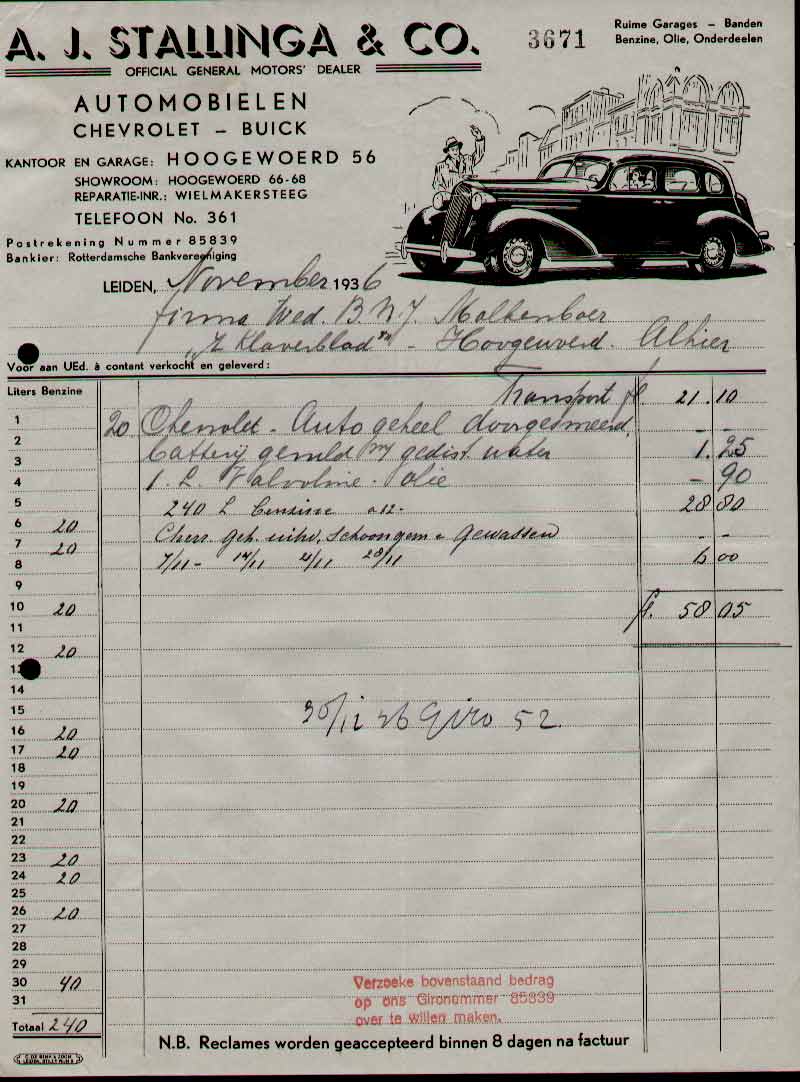 A. J. STALLINGA & CO.
3671
Ruime Garages – Banden
Benzine, Olie, Onderdeelen
OFFICIAL GENERAL MOTORS' DEALER
AUTOMOBIELEN
CHEVROLET – BUICK
KANTOOR EN GARAGE: HOOGEWOERD 56
SHOWROOM: HOOGEWOERD 66-68
REPARATIE-INR.: WIELMAKERSTEEG
TELEFOON No. 361
Postrekening Nummer 85839
Bankier: Rotterdamsche Bankvereeniging
LEIDEN, November 1936
firma Wed. B.N.J. Molkenboer
"'t Klaverblad" - Hoogewoerd. Alhier
Voor aan UEd. à contant verkocht en geleverd:
Liters Benzine
Transport fl. 21.10
1 20 Chevrolet - Auto geheel doorgesmeerd, - -
2 batterij gevuld m/ gedist. water 1.25
3
4 1 L. Valvoline - olie - 90
5 240 L benzine a 12- 28 80
6 20 Chevr. geh. uitw. schoongem. & gewassen - -
7 20
8 7/11 - 14/11 21/11 28/11 6 00
9
10 20 fl. 58 05
11
12 20
13
14
15
16 20
17 20
30/12 36 Giro 52.
18
19
20 20
21
22
23 20
24 20
25
26 20
27
28
29
30 40
31
Totaal 240
Verzoeke bovenstaand bedrag
op ons Gironummer 85839
over te willen maken.
N.B. Reclames worden geaccepteerd binnen 8 dagen na factuur